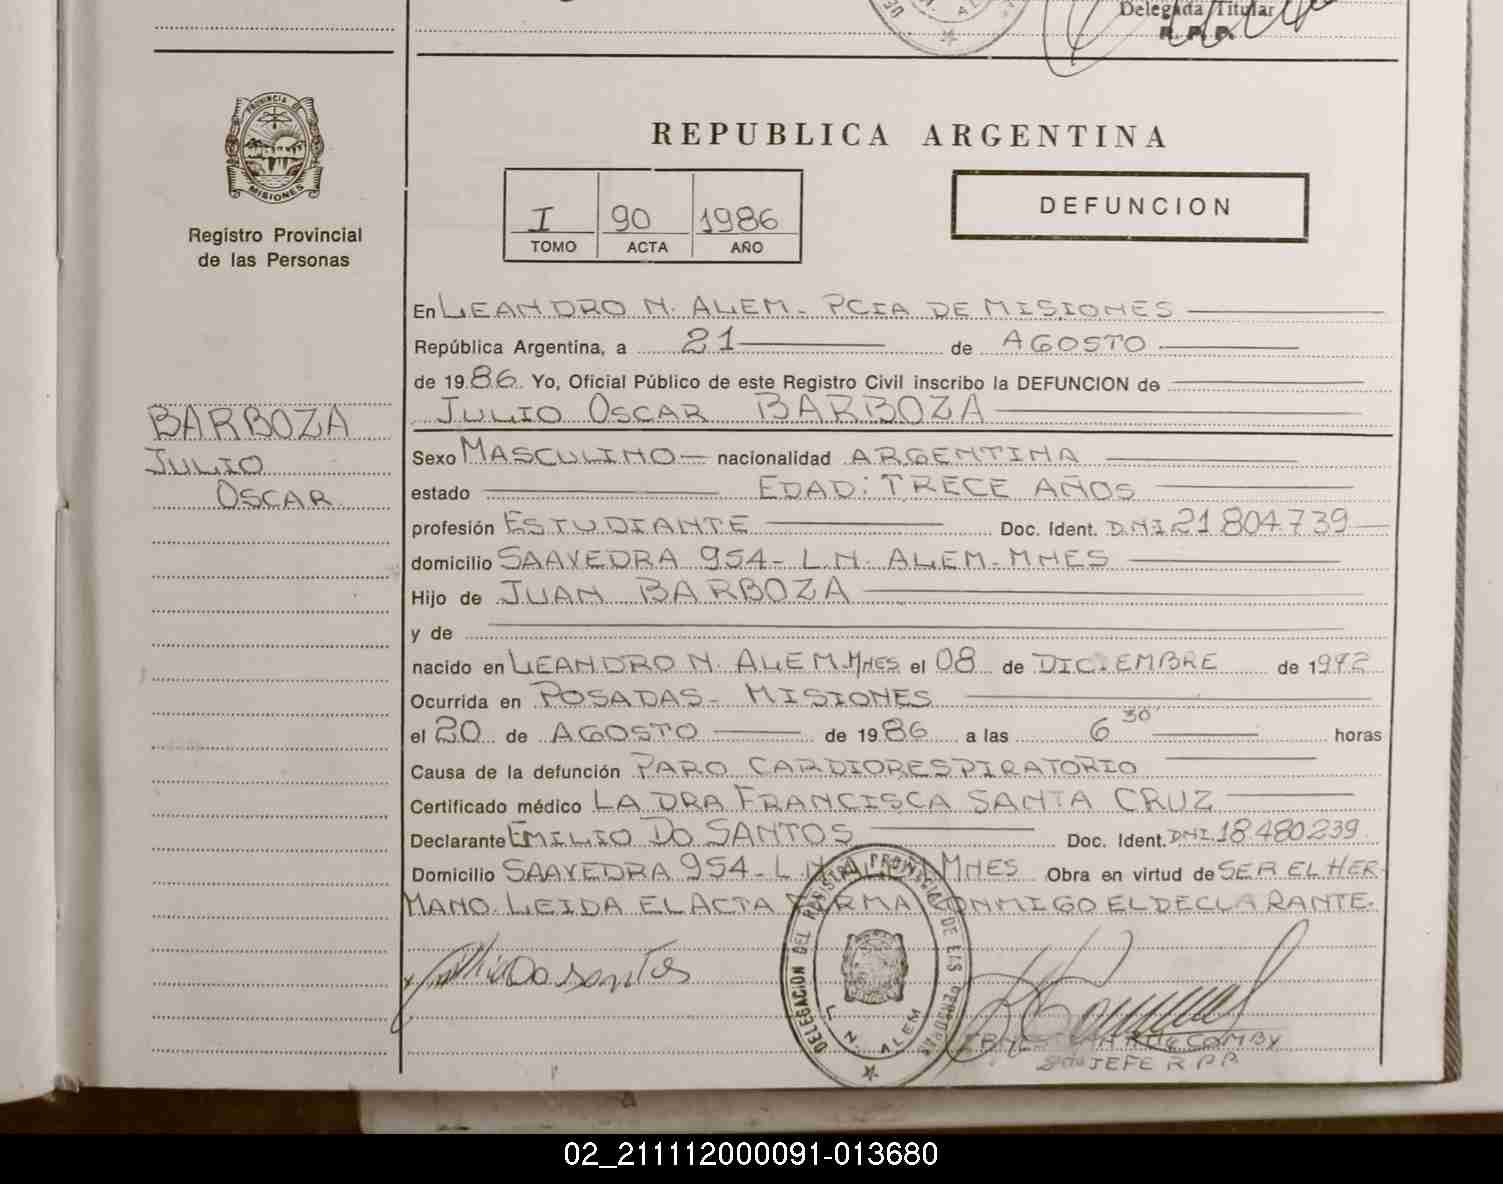 Delegada Titular
R. P. P.
PROVINCIA DE
MISIONES
Registro Provincial
de las Personas
REPUBLICA ARGENTINA
I 90 1986
TOMO ACTA AÑO
DEFUNCION
En LEANDRO N. ALEM - PCIA DE MISIONES
República Argentina, a 21 de AGOSTO
de 1986. Yo, Oficial Público de este Registro Civil inscribo la DEFUNCION de
JULIO OSCAR BARBOZA
BARBOZA
JULIO
OSCAR
Sexo MASCULINO nacionalidad ARGENTINA
estado EDAD: TRECE AÑOS
profesión ESTUDIANTE Doc. Ident. DNI 21.804.739
domicilio SAAVEDRA 954 - L.N. ALEM - MNES
Hijo de JUAN BARBOZA
y de
nacido en LEANDRO N. ALEM. MNES el 08 de DICIEMBRE de 1972
Ocurrida en POSADAS - MISIONES
el 20 de AGOSTO de 1986 a las 6 30' horas
Causa de la defunción PARO CARDIORESPIRATORIO
Certificado médico LA DRA FRANCISCA SANTA CRUZ
Declarante EMILIO DO SANTOS Doc. Ident. DNI. 18.480239
Domicilio SAAVEDRA 954 - L N ALEM MNES Obra en virtud de SER EL HER-
MANO. LEIDA EL ACTA FIRMA CONMIGO EL DECLARANTE.
Emilio Do santos
DELEGACION DEL REGISTRO PROVINCIAL DE LAS PERSONAS
L. N. ALEM
2do JEFE R P P
02_211112000091-013680